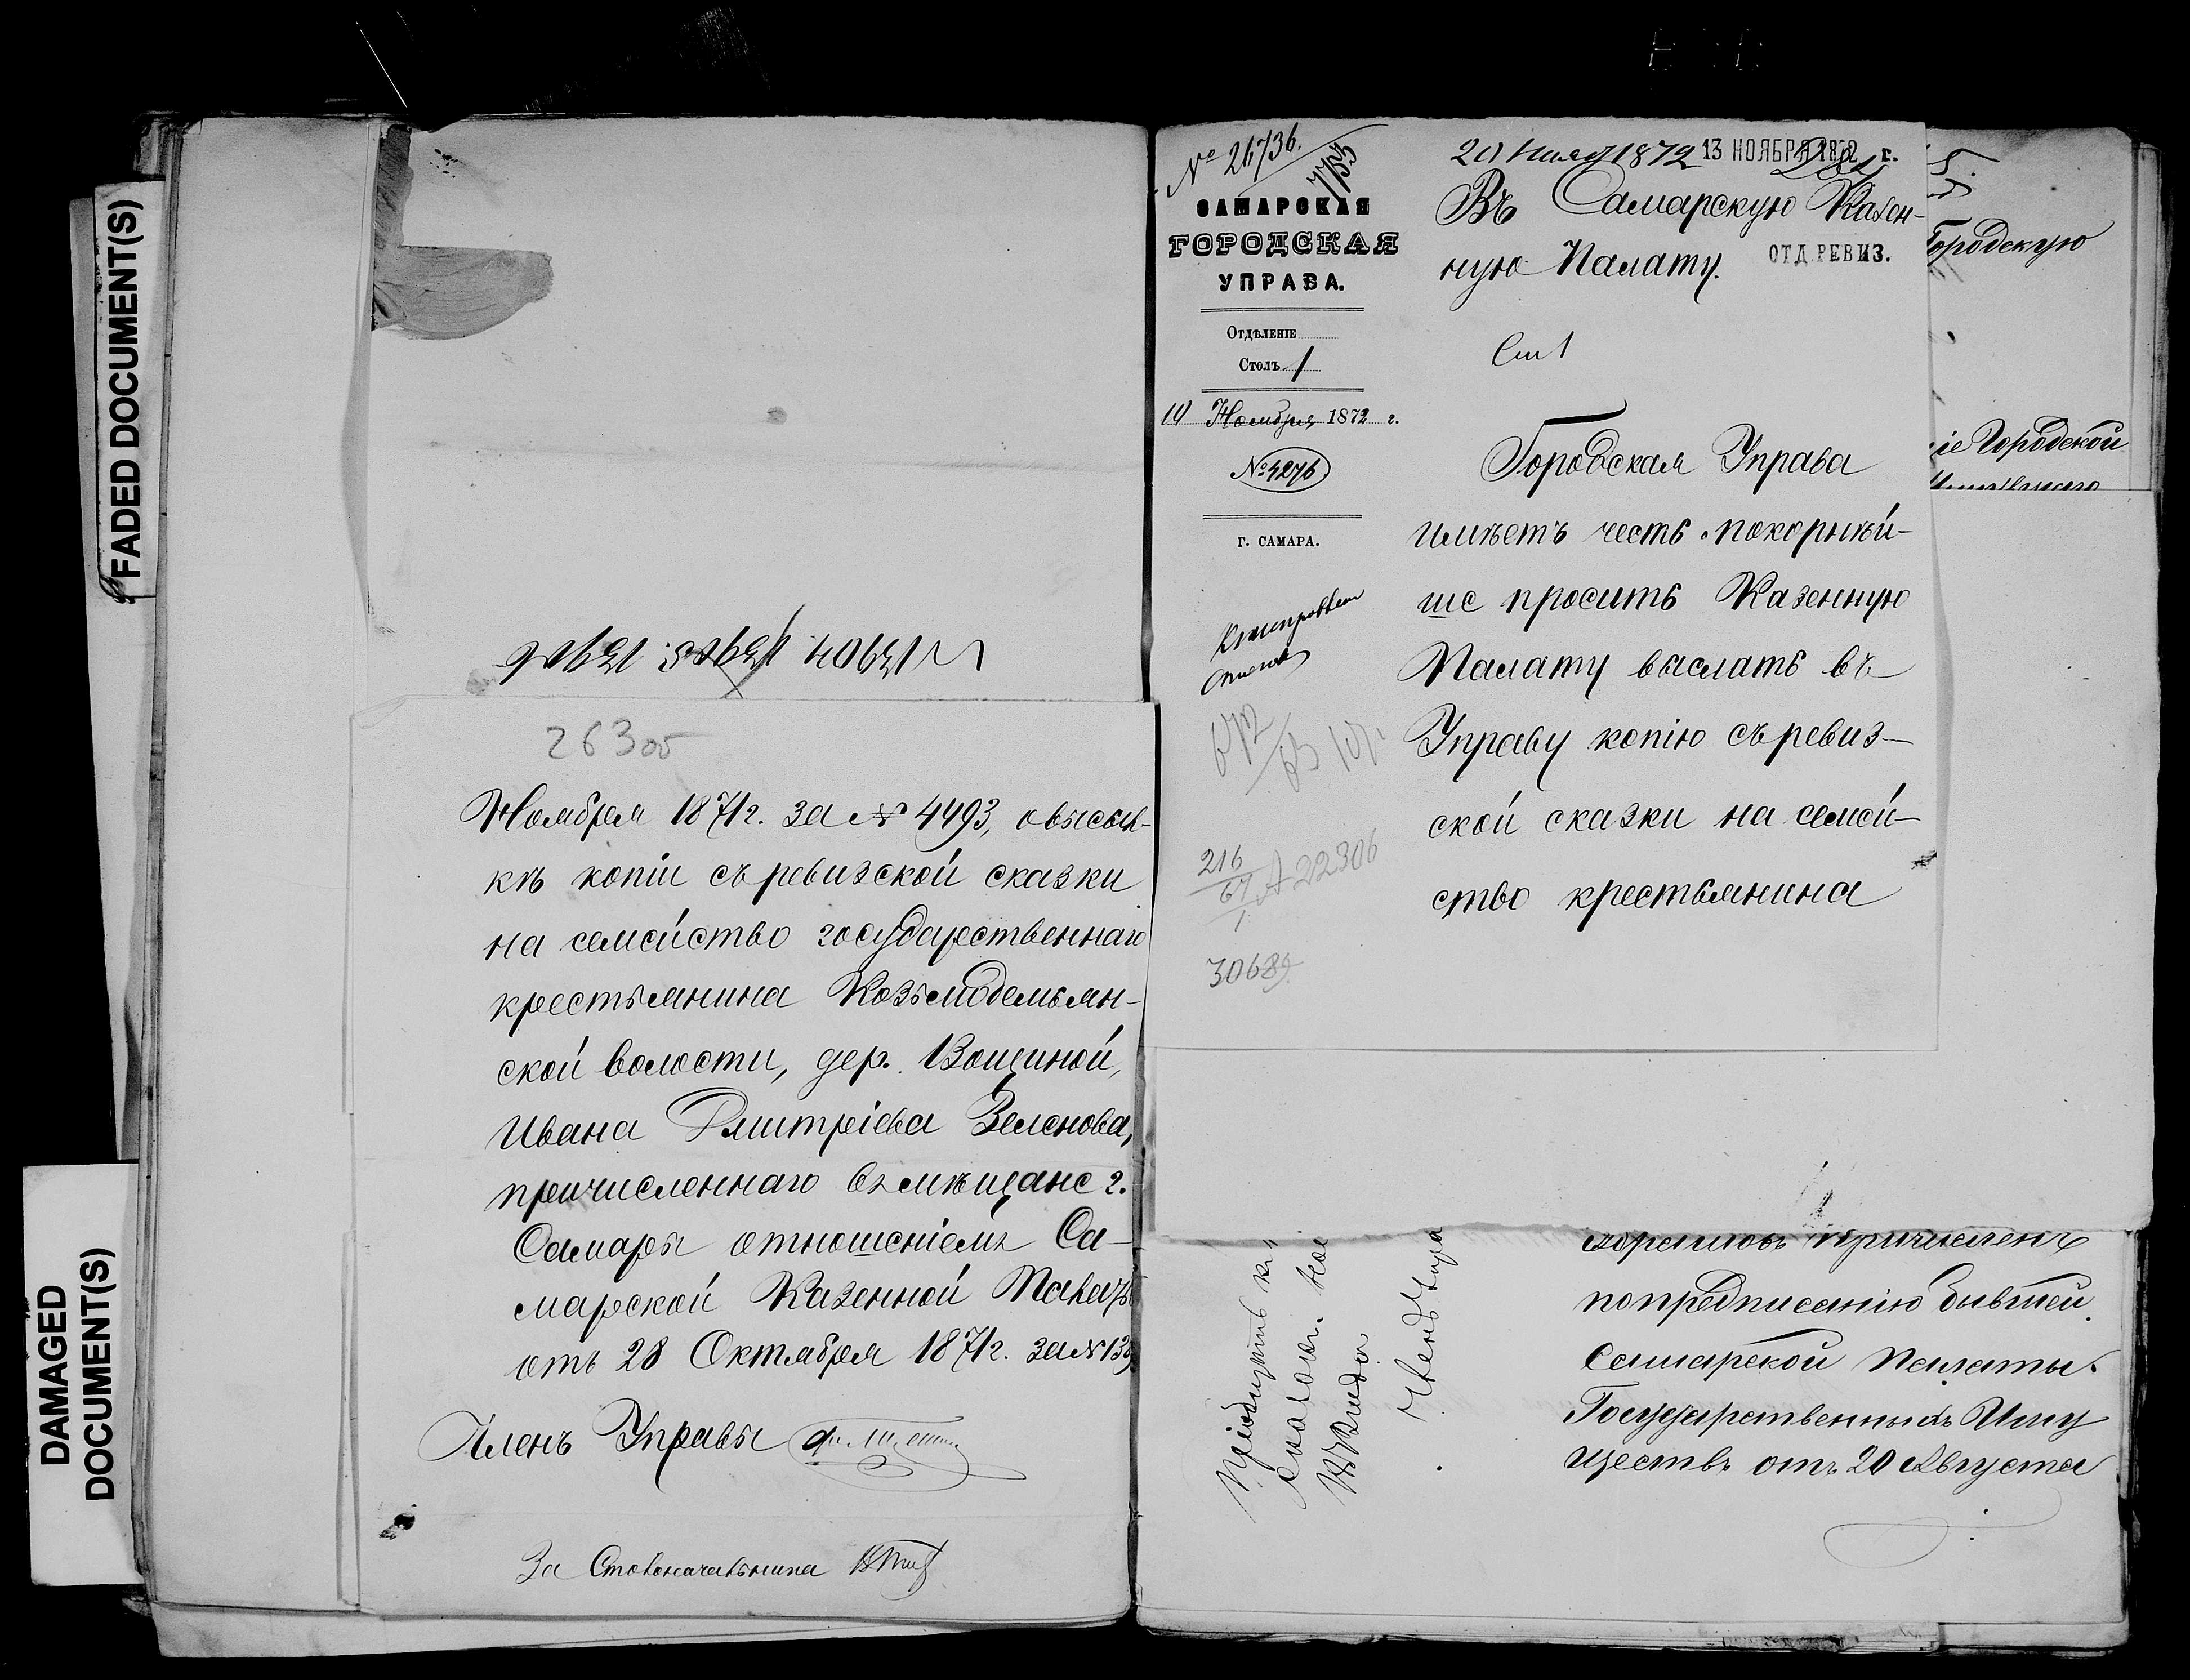 FADED DOCUMENT(S)
DAMAGED
DOCUMENT(S)
26305
Ноября 1871г. за № 4493, о высыл-
кѣ копіи съ ревизской сказки
на семейство государственнаго
крестьянина Козьмодемьян-
ской волости, дер. Вощиной,
Ивана Дмитріева Зеленова,
причисленнаго въ мѣщане г.
Самары отношеніемъ Са-
марской Казенной Палаты
отъ 28 Октября 1871г. за №
Членъ Управы
За Столоначальника
№ 26736.
САМАРСКАЯ
ГОРОДСКАЯ
УПРАВА.
Отдѣленіе
Столъ 1
10 Ноября 1872 г.
№ 4276
г. САМАРА.
216
30689
1872 13 НОЯБРЯ 1872 г.
Въ Самарскую Казен-
ную Палату.
ОТД. РЕВИЗ.
Ст 1
Городская Управа
имѣетъ честь покорнѣй-
ше просить Казенную
Палату выслать въ
Управу копію съ ревиз-
ской сказки на семей-
ство крестьянина
Городскую
Городской
причисленъ
по предписанію бывшей
Самарской Палаты
Государственныхъ Иму
ществъ отъ 20 Августа